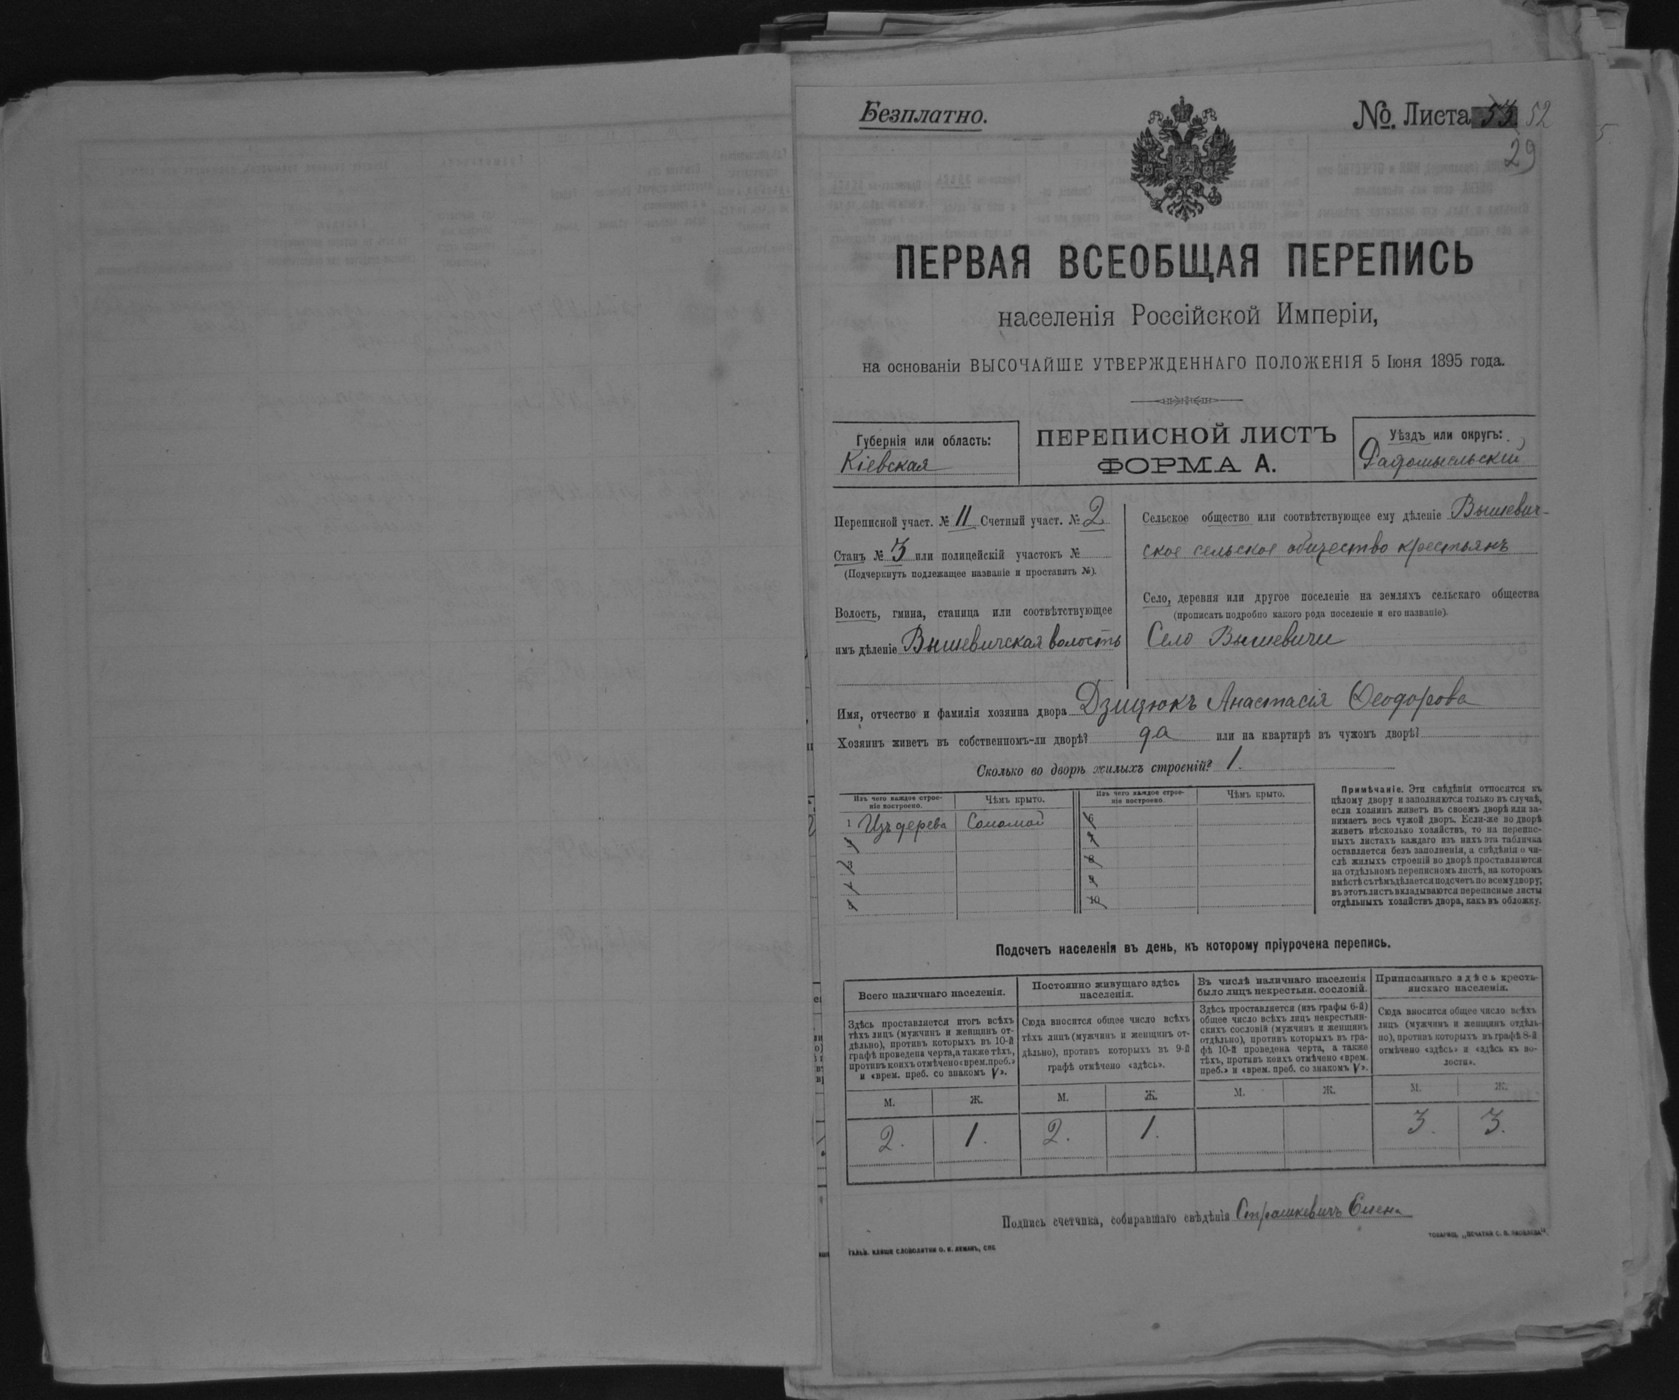 Безплатно.
№ Листа 52
29
ПЕРВАЯ ВСЕОБЩАЯ ПЕРЕПИСЬ
населенія Россійской Имперіи,
на основаніи ВЫСОЧАЙШЕ УТВЕРЖДЕННАГО ПОЛОЖЕНІЯ 5 Іюня 1895 года.
Губернія или область:
Кіевская
ПЕРЕПИСНОЙ ЛИСТЪ
ФОРМА А.
Уѣздъ или округъ:
Радомысльскій
Переписной участ. № 11 Счетный участ. № 2
Станъ № 3 или полицейскій участокъ №
(Подчеркнуть подлежащее названіе и проставить №).
Волость, гмина, станица или соотвѣтствующее
имъ дѣленіе Вышевичская волость
Сельское общество или соотвѣтствующее ему дѣленіе Вышевич-
ское сельское общество крестьянъ
Село, деревня или другое поселеніе на земляхъ сельскаго общества
(прописать подробно какого рода поселеніе и его названіе).
Село Вышевичи
Имя, отчество и фамилія хозяина двора Дзицюкъ Анастасія Ѳеодорова
Хозяинъ живетъ въ собственномъ-ли дворѣ? да или на квартирѣ въ чужомъ дворѣ?
Сколько во дворѣ жилыхъ строеній? 1.
Изъ чего каждое строе-
ніе построено.
Чѣмъ крыто.
Изъ чего каждое строе-
ніе построено.
Чѣмъ крыто.
1 Изъ дерева Соломой
10
Примѣчаніе. Эти свѣдѣнія относятся къ
цѣлому двору и заполняются только въ случаѣ,
если хозяинъ живетъ въ своемъ дворѣ или за-
нимаетъ весь чужой дворъ. Если-же во дворѣ
живетъ нѣсколько хозяйствъ, то на перепис-
ныхъ листахъ каждаго изъ нихъ эта табличка
оставляется безъ заполненія, а свѣдѣнія о чи-
слѣ жилыхъ строеній во дворѣ проставляются
на отдѣльномъ переписномъ листѣ, на которомъ
вмѣстѣ съ тѣмъ дѣлается подсчетъ по всему двору;
въ этотъ листъ вкладываются переписные листы
отдѣльныхъ хозяйствъ двора, какъ въ обложку.
Подсчетъ населенія въ день, къ которому пріурочена перепись.
Всего наличнаго населенія.
Здѣсь проставляется итогъ всѣхъ
тѣхъ лицъ (мужчинъ и женщинъ от-
дѣльно), противъ которыхъ въ 10-й
графѣ проведена черта, а также тѣхъ,
противъ коихъ отмѣчено «врем. проб.»
и «врем. преб. со знакомъ V».
Постоянно живущаго здѣсь
населенія.
Сюда вносится общее число всѣхъ
тѣхъ лицъ (мужчинъ и женщинъ от-
дѣльно), противъ которыхъ въ 9-й
графѣ отмѣчено «здѣсь».
Въ числѣ наличнаго населенія
было лицъ некрестьян. сословій.
Здѣсь проставляется (изъ графы 6-й)
общее число всѣхъ лицъ некрестьян-
скихъ сословій (мужчинъ и женщинъ
отдѣльно), противъ которыхъ въ гра-
фѣ 10-й проведена черта, а также
тѣхъ, противъ коихъ отмѣчено «врем.
преб.» и «врем. преб. со знакомъ V».
Приписаннаго здѣсь кресть-
янскаго населенія.
Сюда вносится общее число всѣхъ
лицъ (мужчинъ и женщинъ отдѣль-
но), противъ которыхъ въ графѣ 8-й
отмѣчено «здѣсь» и «здѣсь въ во-
лости».
М. Ж. М. Ж. М. Ж. М. Ж.
2. 1. 2. 1. 3. 3.
Подпись счетчика, собиравшаго свѣдѣнія Страшкевичъ
ГАЛЬВ. КЛИШЕ СЛОВОЛИТНИ О. И. ЛЕМАНЪ, СПБ.
ТОВАРИЩ. „ПЕЧАТНЯ С. П. ЯКОВЛЕВА“.